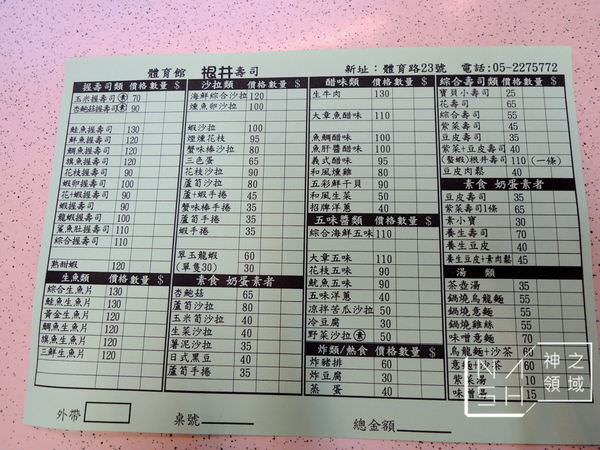 體育館 根井壽司 新址：體育路23號 電話：05-2275772
握壽司類 價格 數量 $
玉米握壽司 素 70
杏鮑菇握壽司 素 90
鮭魚握壽司 130
鮮魚握壽司 110
鯛魚握壽司 115
旗魚握壽司 110
花枝握壽司 110
蝦卵握壽司 100
花+蝦握壽司 110
蝦握壽司 110
龍蝦握壽司 100
鯊魚肚握壽司 110
綜合握壽司 110
熟甜蝦 120
生魚類 價格 數量 $
綜合生魚片 130
鮭魚生魚片 130
黃金生魚片 110
鯛魚生魚片 120
旗魚生魚片 115
三鮮生魚片 120
沙拉類 價格 數量 $
海鮮綜合沙拉 120
燻魚卵沙拉 100
蝦沙拉 100
煙燻花枝 95
蟹味棒沙拉 80
三色蛋 65
花枝沙拉 90
蘆筍沙拉 80
蘆+蝦手捲 35
蟹味棒手捲 35
蘆筍手捲 35
蝦手捲 35
翠玉龍蝦 60
(單隻30) 30
素食 奶蛋素者
杏鮑菇 65
蘆筍沙拉 80
玉米筍沙拉 40
生菜沙拉 40
薯泥沙拉 35
日式黑豆 40
蘆筍手捲 35
醋味類 價格 數量 $
生牛肉 130
大章魚醋味 110
魚鯛醋味 100
魚肝醬醋味 100
義式醋味 95
和風燻雞 80
五彩鮮干貝 90
和風生菜 50
招牌洋蔥 40
五味醬類 價格 數量 $
綜合海鮮五味 110
大章五味 110
花枝五味 90
魷魚五味 90
五味洋蔥 40
涼拌苦瓜沙拉 50
冷豆腐 30
野菜沙拉 素 50
炸類/熱食 價格 數量 $
炸豬排 60
炸豆腐 30
蒸蛋 40
綜合壽司類 價格 數量 $
寶貝小壽司 25
花壽司 65
綜合壽司 50
紫菜壽司 45
豆皮壽司 35
紫菜+豆皮壽司 40
(鰲蝦)根井壽司 110 (一條)
豆皮肉鬆 40
素食 奶蛋素者
豆皮壽司 35
紫菜壽司1條 65
素小寶 30
養生壽司 70
養生豆皮 40
養生豆皮+素肉鬆 45
湯類
茶壺湯 35
鍋燒烏龍麵 55
鍋燒意麵 50
鍋燒雞絲 55
味噌意麵 60
烏龍麵+沙茶 60
意麵+沙茶 55
紫菜湯 10
味噌湯 15
外帶 桌號 總金額
神之領域